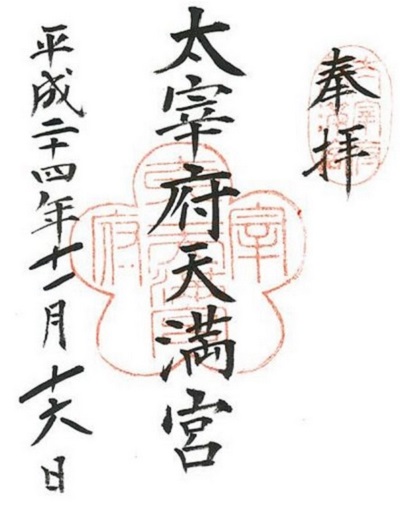 奉拝
太宰府天満宮
平成二十四年十一月十六日